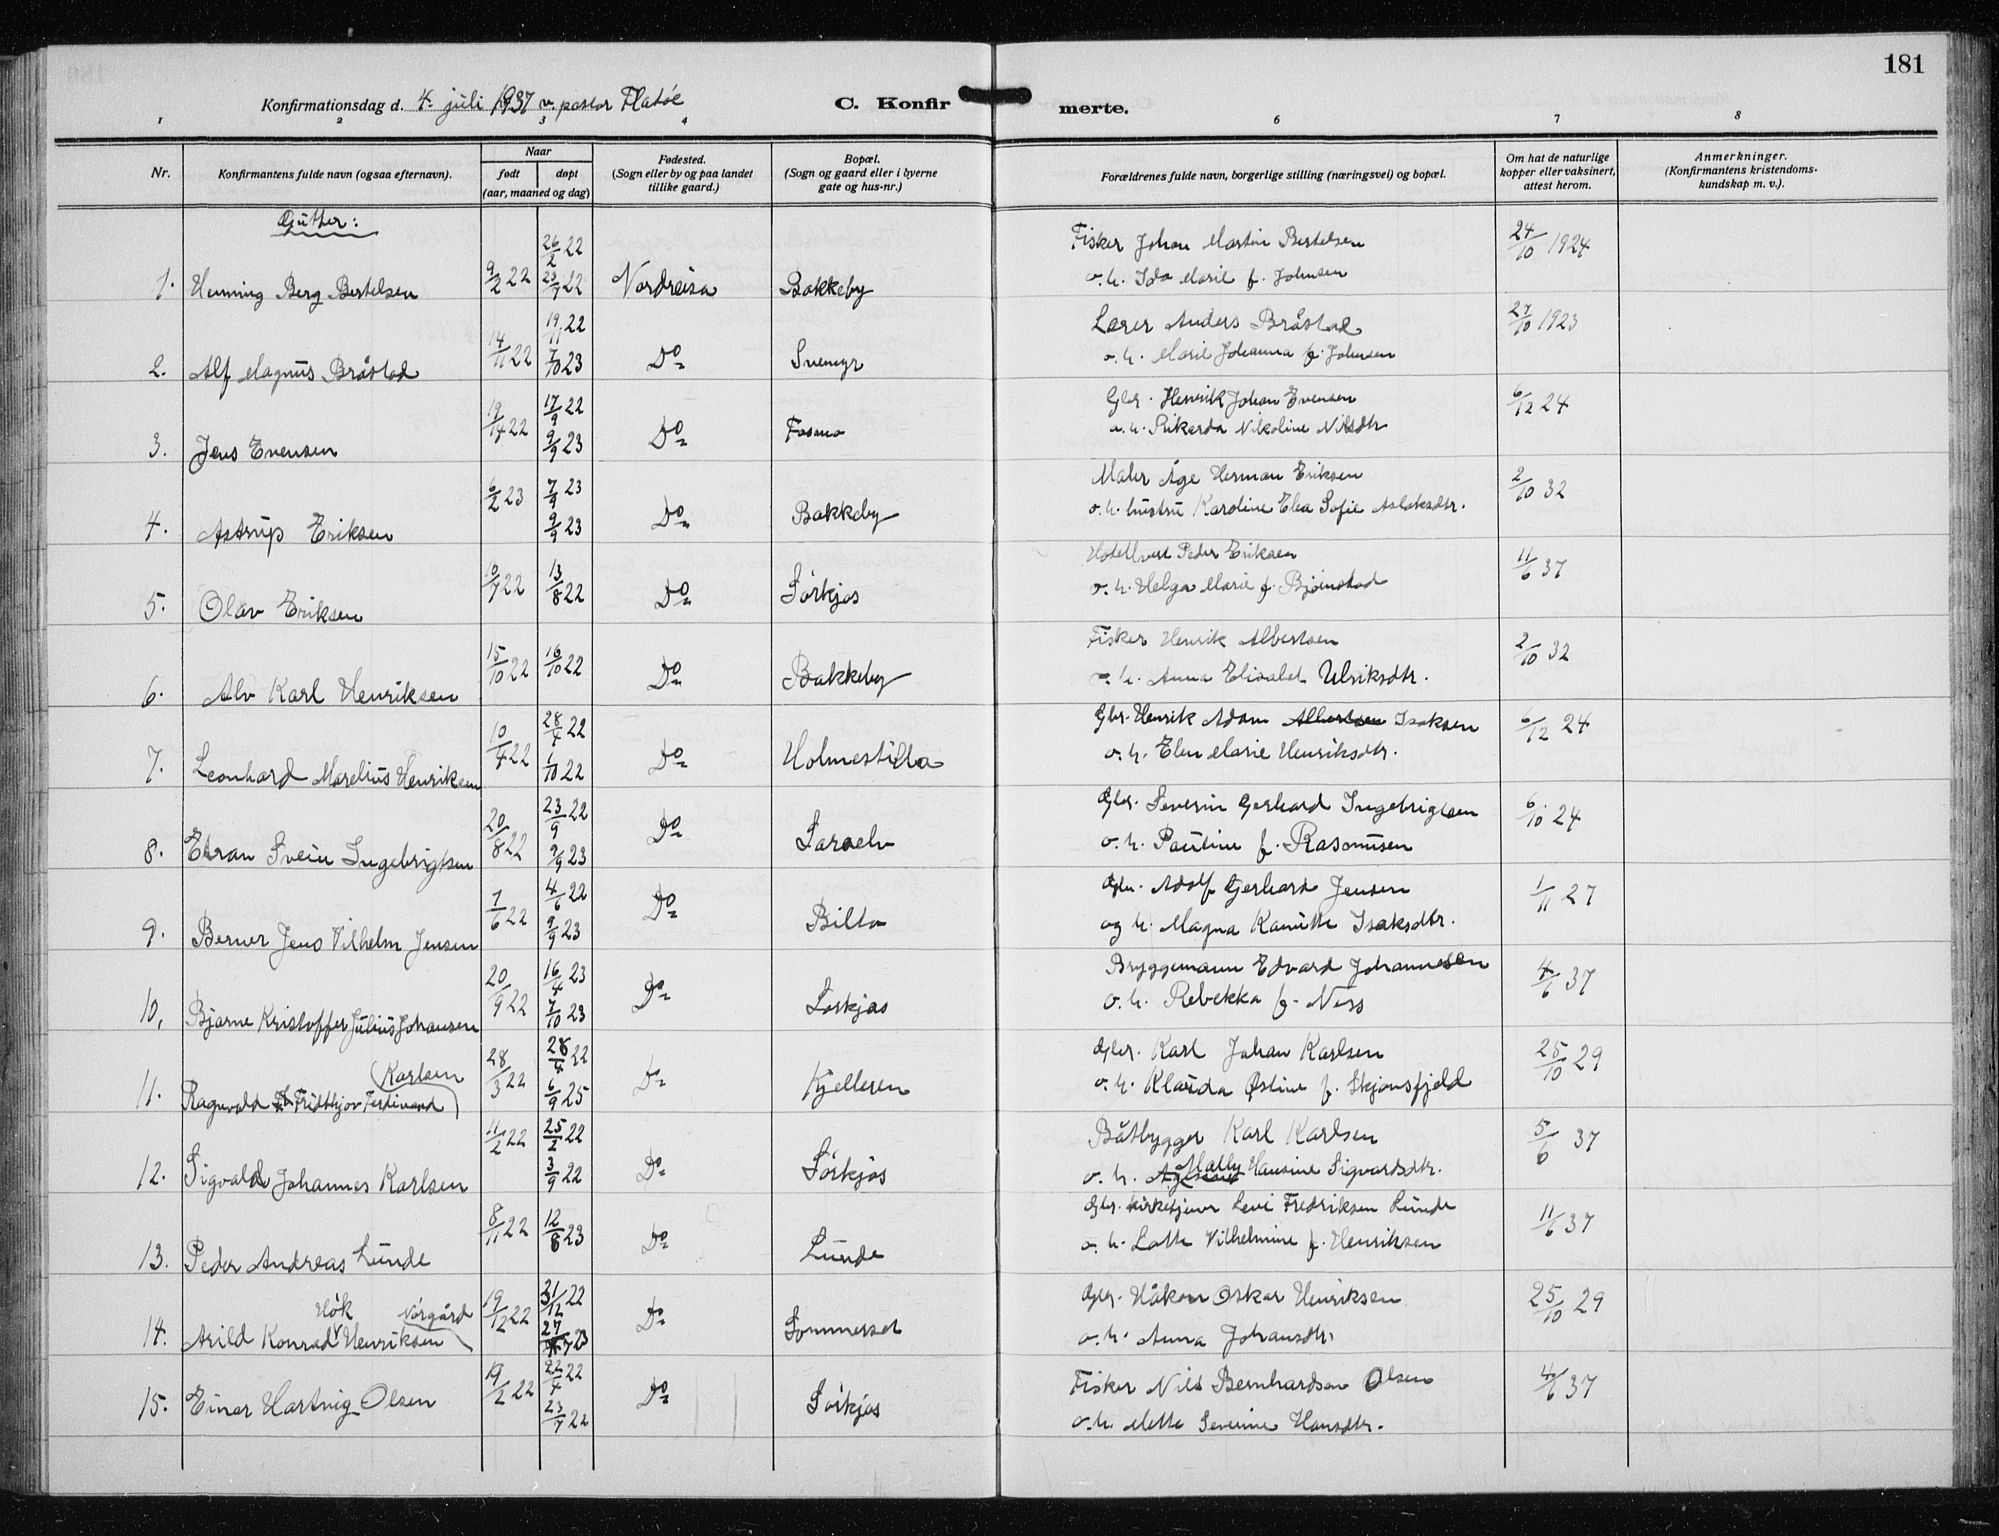 181
Konfirmationsdag d. 4. juli 1937 v. pastor Flatöe
C. Konfirmerte.
1 2 3 4 6 7 8
Nr. Konfirmantens fulde navn (ogsaa efternavn). Naar født døpt (aar, maaned og dag) Fødested. (Sogn eller by og paa landet tillike gaard.) Bopæl. (Sogn og gaard eller i byerne gate og hus-nr.) Forældrenes fulde navn, borgerlige stilling (næringsvei) og bopæl. Om hat de naturlige kopper eller vaksinert, attest herom. Anmerkninger. (Konfirmantens kristendoms-kundskap m. v.).
Gutter:
1. Henning Berg Bertelsen 9/2 22 26/2 22 23/7 22 Nordreisa Bakkeby Fisker Johan Martin Bertelsen 24/10 1924
o. h. Ida Marie f. Johnsen
2. Alf Magnus Bråstad 14/11 22 19/11 22 7/10 23 Do Snemyr Lærer Anders Bråstad 27/10 1923
o. h. Marie Johanna f. Johnsen
3. Jens Evensen 22 17/9 22 9/9 23 Do Fosmo Gbr. Henrik Johan Evensen 6/12 24
o. h. Rikarda Nikoline Nilsdtr
4. Astrup Eriksen 6/2 23 7/9 23 9/9 23 Do Bakkeby Maler Åge Herman Eriksen 2/10 32
o. h. hustru Karoline Elea Sofie Aslaksdtr.
5. Olav Eriksen 10/7 22 13/8 22 Do Sörkjos Hotellvert Peder Eriksen 11/6 37
o. h. Helga Marie f. Bjørnstad
6. Alv Karl Henriksen 15/10 22 16/10 22 Do Bakkeby Fisker Henrik Albertsen 2/10 32
o. h. Anna Elisabet Ulriksdtr.
7. Leonhard Marelius Henriksen 10/4 22 28/4 22 1/10 22 Do Holmestilla Gbr. Henrik Adam Albertsen Isaksen 6/12 24
o. h. Elen Marie Henriksdtr.
8. Svein Ingebrigtsen 20/8 22 23/9 22 9/9 23 Do Saraelv Gbr. Severin Gerhard Ingebrigtsen 6/10 24
o. h. Pauline f. Rasmusen
9. Berner Jens Vilhelm Jensen 7/6 22 4/6 22 9/9 23 Do Bilto Gbr. Adolf Gerhard Jensen 1/11 27
og h. Magna Kanutte Isaksdtr.
10. Bjarne Kristoffer Julius Johansen 20/9 22 16/4 23 7/10 23 Do Sörkjos Bryggemann Edvard Johannesen 4/6 37
o. h. Rebekka f. Ness
11. Ragnvald Fridthjov Ferdinand Karlsen 28/3 22 28/4 22 6/9 25 Do Kjelleren Gbr. Karl Johan Karlsen 25/10 29
o. h. Klauda Østine f. Skjønsfjeld
12. Sigvald Johannes Karlsen 11/2 22 25/2 22 3/9 22 Do Sörkjos Båtbygger Karl Karlsen 5/6 37
o. h. Mally Hansine Sigvardsdtr.
13. Peder Andreas Lunde 8/11 22 12/8 23 Do Lunde Gbr. kirketjener Levi Fredriksen Lunde 11/6 37
o. h. Lotte Vilhelmine f. Henriksen
14. Arild Konrad Hök Henriksen Norgård 19/12 22 31/12 22 27/7 23 Do Sommerset Gbr. Håkon Oskar Henriksen 25/10 29
o. h. Anna Johansdtr.
15. Einar Hartvig Olsen 19/2 22 22/4 22 23/7 22 Do Sörkjos Fisker Nils Bernhardsen Olsen 4/6 37
o. h. Mette Severine Hansdtr.